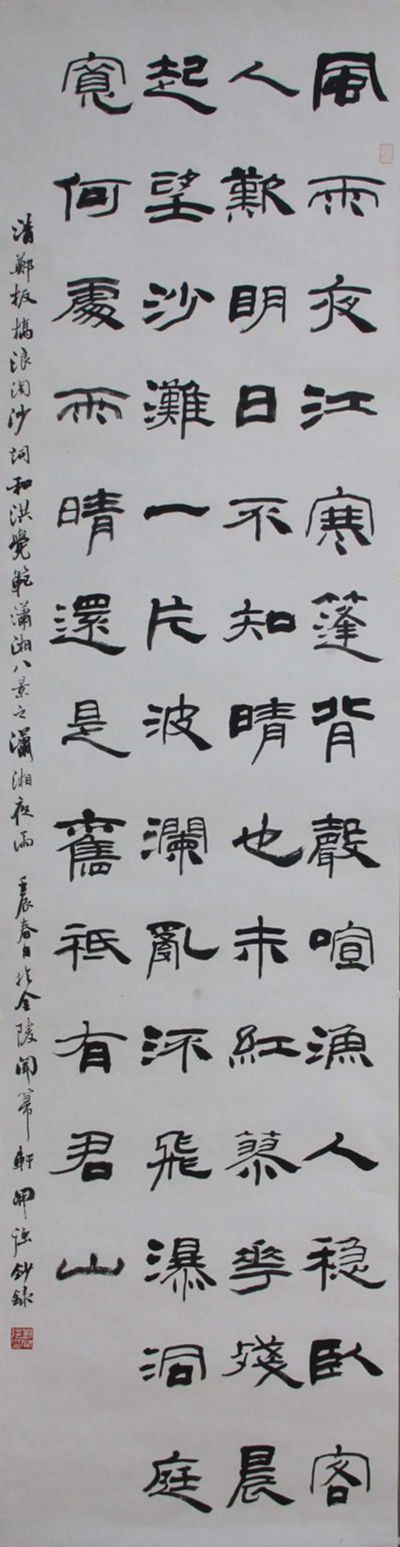 風雨夜江寒篷背聲喧漁人稳臥客
人歎明日不知晴也未紅蓼花殘晨
起望沙灘一片波瀾亂流飛瀑洞庭
寬何處雨晴還是舊祇有君山
清鄭板橋浪淘沙詞和洪覺範瀟湘八景之瀟湘夜雨 壬辰春日於金陵聞軒鈔録